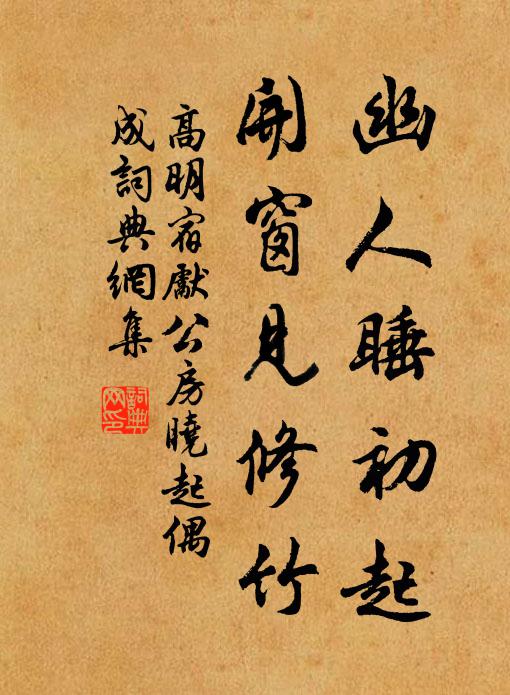 幽人睡初起
開窗見修竹
高明宿獻公房曉起偶
成詞典網集
詞典
网印